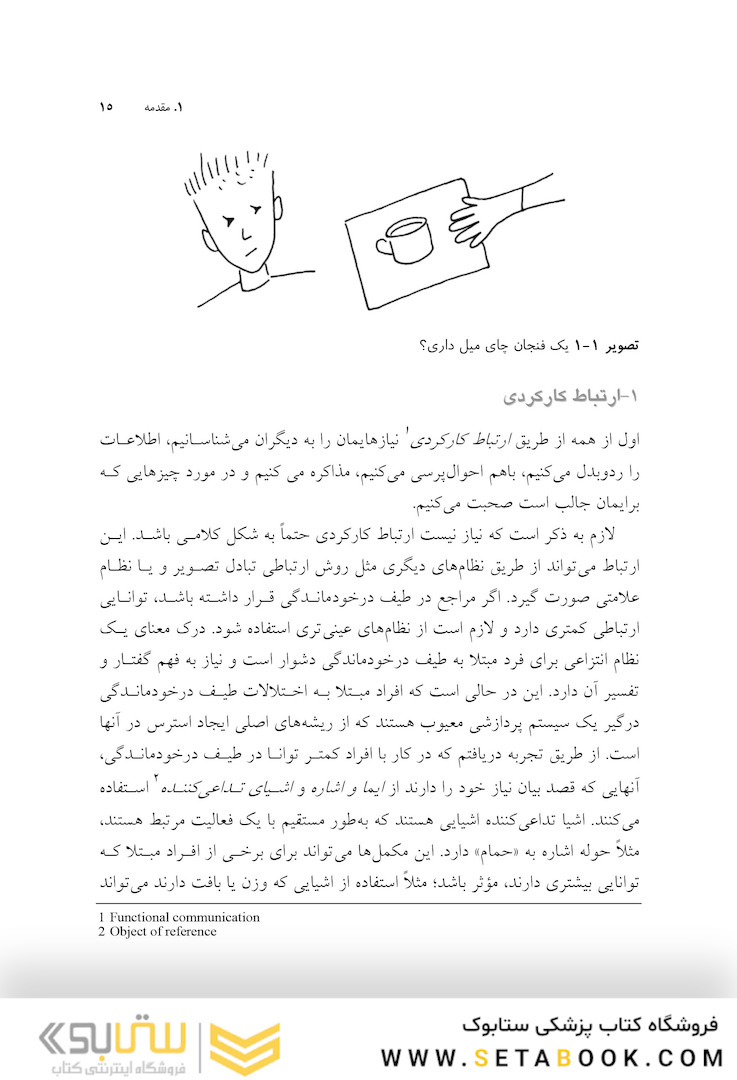 ۱. مقدمه ۱۵
تصویر ۱-۱ یک فنجان چای میل داری؟
۱-ارتباط کارکردی
اول از همه از طریق ارتباط کارکردی۱ نیازهایمان را به دیگران می‌شناسانیم، اطلاعات
را ردوبدل می‌کنیم، باهم احوال‌پرسی می‌کنیم، مذاکره می کنیم و در مورد چیزهایی که
برایمان جالب است صحبت می‌کنیم.
لازم به ذکر است که نیاز نیست ارتباط کارکردی حتماً به شکل کلامی باشد. این
ارتباط می‌تواند از طریق نظام‌های دیگری مثل روش ارتباطی تبادل تصویر و یا نظام
علامتی صورت گیرد. اگر مراجع در طیف درخودماندگی قرار داشته باشد، توانایی
ارتباطی کمتری دارد و لازم است از نظام‌های عینی‌تری استفاده شود. درک معنای یک
نظام انتزاعی برای فرد مبتلا به طیف درخودماندگی دشوار است و نیاز به فهم گفتار و
تفسیر آن دارد. این در حالی است که افراد مبتلا به اختلالات طیف درخودماندگی
درگیر یک سیستم پردازشی معیوب هستند که از ریشه‌های اصلی ایجاد استرس در آنها
است. از طریق تجربه دریافتم که در کار با افراد کمتر توانا در طیف درخودماندگی،
آنهایی که قصد بیان نیاز خود را دارند از ایما و اشاره و اشیای تداعی‌کننده۲ استفاده
می‌کنند. اشیا تداعی‌کننده اشیایی هستند که به‌طور مستقیم با یک فعالیت مرتبط هستند،
مثلاً حوله اشاره به «حمام» دارد. این مکمل‌ها می‌تواند برای برخی از افراد مبتلا که
توانایی بیشتری دارند، مؤثر باشد؛ مثلاً استفاده از اشیایی که وزن یا بافت دارند می‌تواند
1 Functional communication
2 Object of reference
فروشگاه کتاب پزشکی ستابوک
WWW.SETABOOK.COM
ستابوک
فروشگاه اینترنتی کتاب